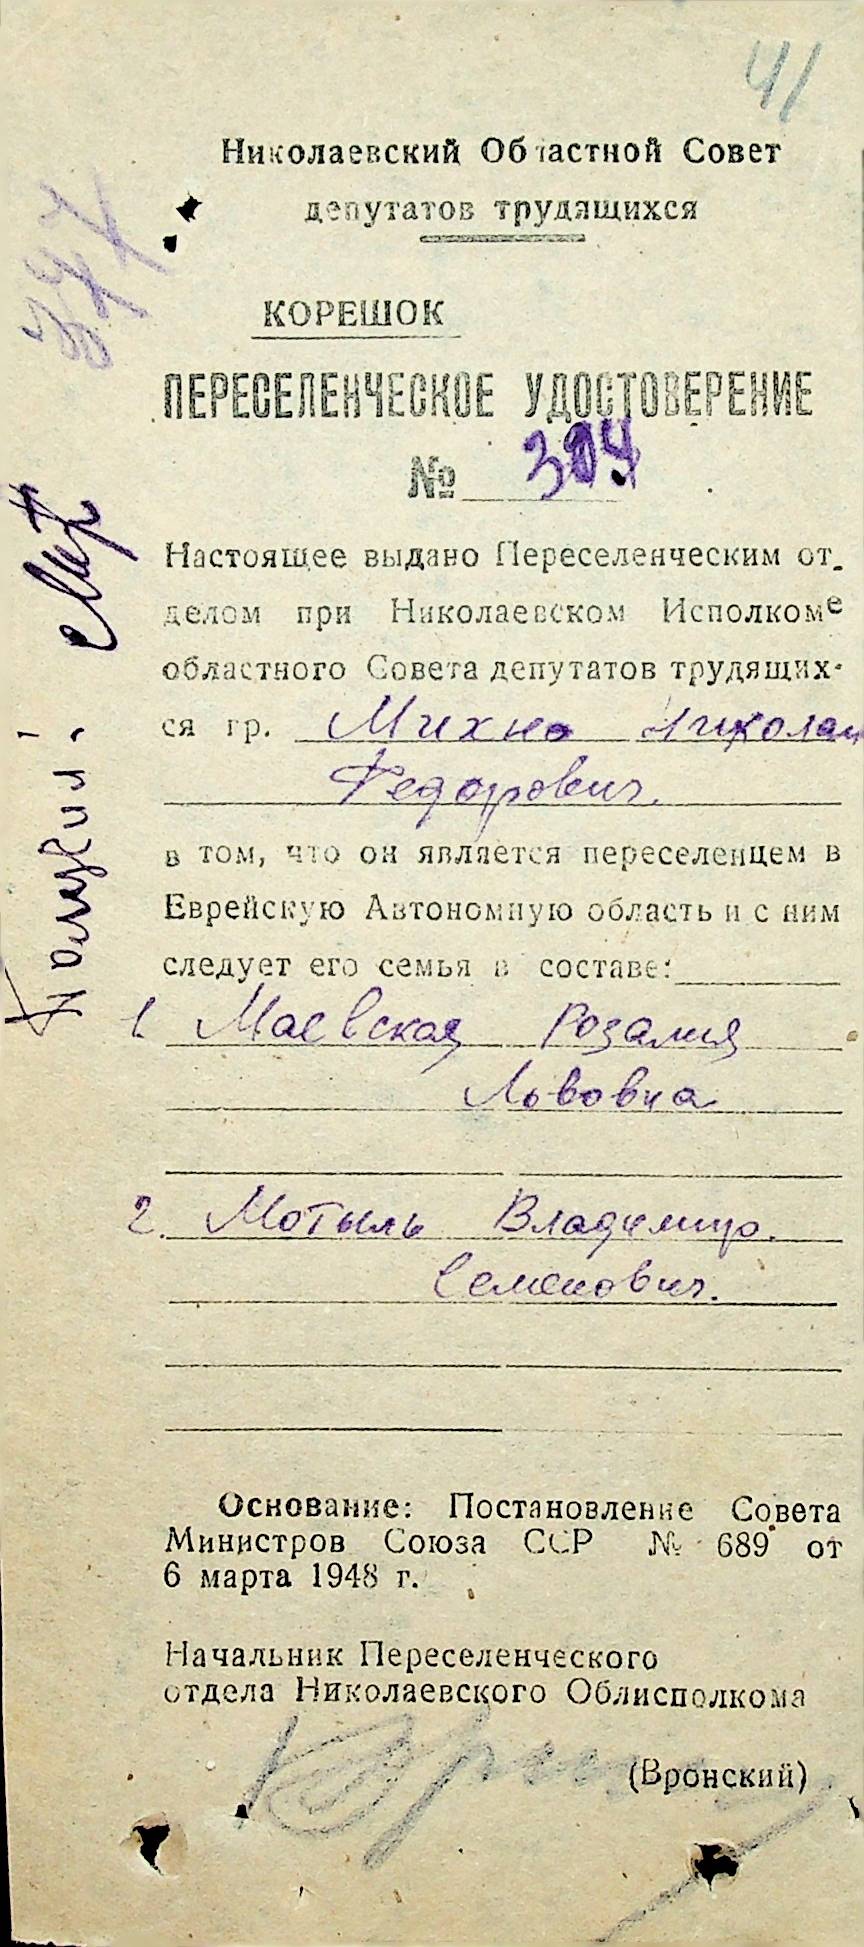 41
Николаевский Областной Совет
депутатов трудящихся
377
КОРЕШОК
ПЕРЕСЕЛЕНЧЕСКОЕ УДОСТОВЕРЕНИЕ
№
Настоящее выдано Переселенческим от-
делом при Николаевском Исполкоме
областного Совета депутатов трудящих-
ся гр. Михно Николай
Федорович.
в том, что он является переселенцем в
Еврейскую Автономную область и с ним
следует его семья в составе:
1 Маевская Розалия
Львовна
2. Мотыль Владимир.
Семенович.
Основание: Постановление Совета
Министров Союза ССР № 689 от
6 марта 1948 г.
Начальник Переселенческого
отдела Николаевского Облисполкома
(Вронский)